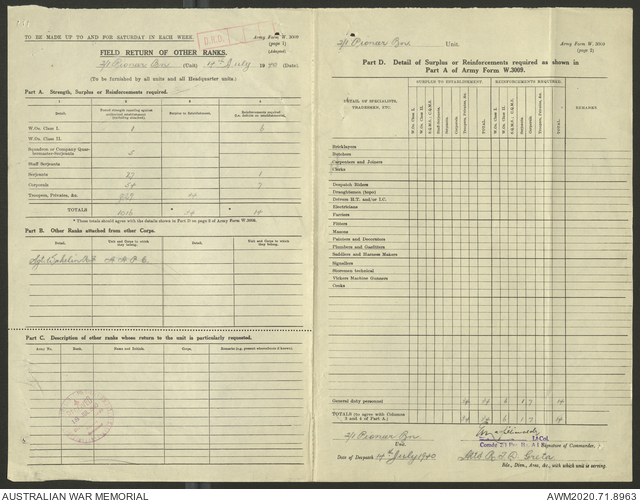 TO BE MADE UP TO AND FOR SATURDAY IN EACH WEEK.
Army Form W. 3009
(page 1)
(Adapted)
FIELD RETURN OF OTHER RANKS.
2/1 Pionar Bn (Unit) 14th July 1940 (Date)
(To be furnished by all units and all Headquarter units.)
Part A. Strength, Surplus or Reinforcements required.
1 2 3 4
Detail.
Surplus to Establishment.
W.Os. Class I. 1 6
W.Os. Class II.
Squadron or Company Quar-
termaster-Serjeants 5
Staff Serjeants
Serjeants 27 1
Corporals 7
Troopers, Privates, &c. 14
TOTALS 1016 14 14
* These totals should agree with the details shown in Part D on page 2 of Army Form W.3009.
Part B. Other Ranks attached from other Corps.
Detail. Unit and Corps to which they belong. Detail. Unit and Corps to which they belong.
Part C. Description of other ranks whose return to the unit is particularly requested.
Army No. Rank. Name and Initials. Corps. Remarks (e.g., present whereabouts if known).
2/1 Pionar Bn Unit.
Army Form W. 3009
(page 2)
Part D. Detail of Surplus or Reinforcements required as shown in
Part A of Army Form W.3009.
DETAIL OF SPECIALISTS, TRADESMEN, ETC.
SURPLUS TO ESTABLISHMENT. REINFORCEMENTS REQUIRED.
REMARKS
W.Os. Class I.
W.Os. Class II.
S.Q.M.S., C.Q.M.S.
Staff-Serjeants
Serjeants
Corporals
Troopers, Privates, &c.
TOTAL
W.Os. Class I.
W.Os. Class II.
S.Q.M.S., C.Q.M.S.
Staff-Serjeants
Serjeants
Corporals
Troopers, Privates, &c.
TOTAL
Bricklayers
Butchers
Carpenters and Joiners
Clerks
Despatch Riders
Draughtsmen (topo)
Drivers H.T. and/or I.C.
Electricians
Farriers
Fitters
Masons
Painters and Decorators
Plumbers and Gasfitters
Saddlers and Harness Makers
Signallers
Storemen technical
Vickers Machine Gunners
Cooks
General duty personnel 14 14 6 1 7 14
TOTALS (to agree with Columns
3 and 4 of Part A) 14 14 6 1 7 14
2/1 Pionar Bn
Unit.
Lt.Col.
Signature of Commander.
Date of Despatch 14th July 1940
Bde., Divn., Area, &c., with which unit is serving.
AUSTRALIAN WAR MEMORIAL
AWM2020.71.8963